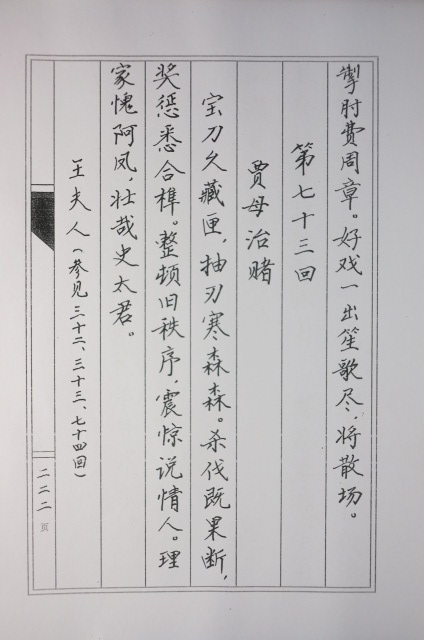 掣肘费周章。好戏一出笙歌尽，将散场。
第七十三回
贾母治赌
宝刀久藏匣，抽刃寒森森。杀伐既果断，
奖惩悉合榫。整顿旧秩序，震惊说情人。理
家愧阿凤，壮哉史太君。
王夫人（参见三十二、三十三、七十四回）
二二二页